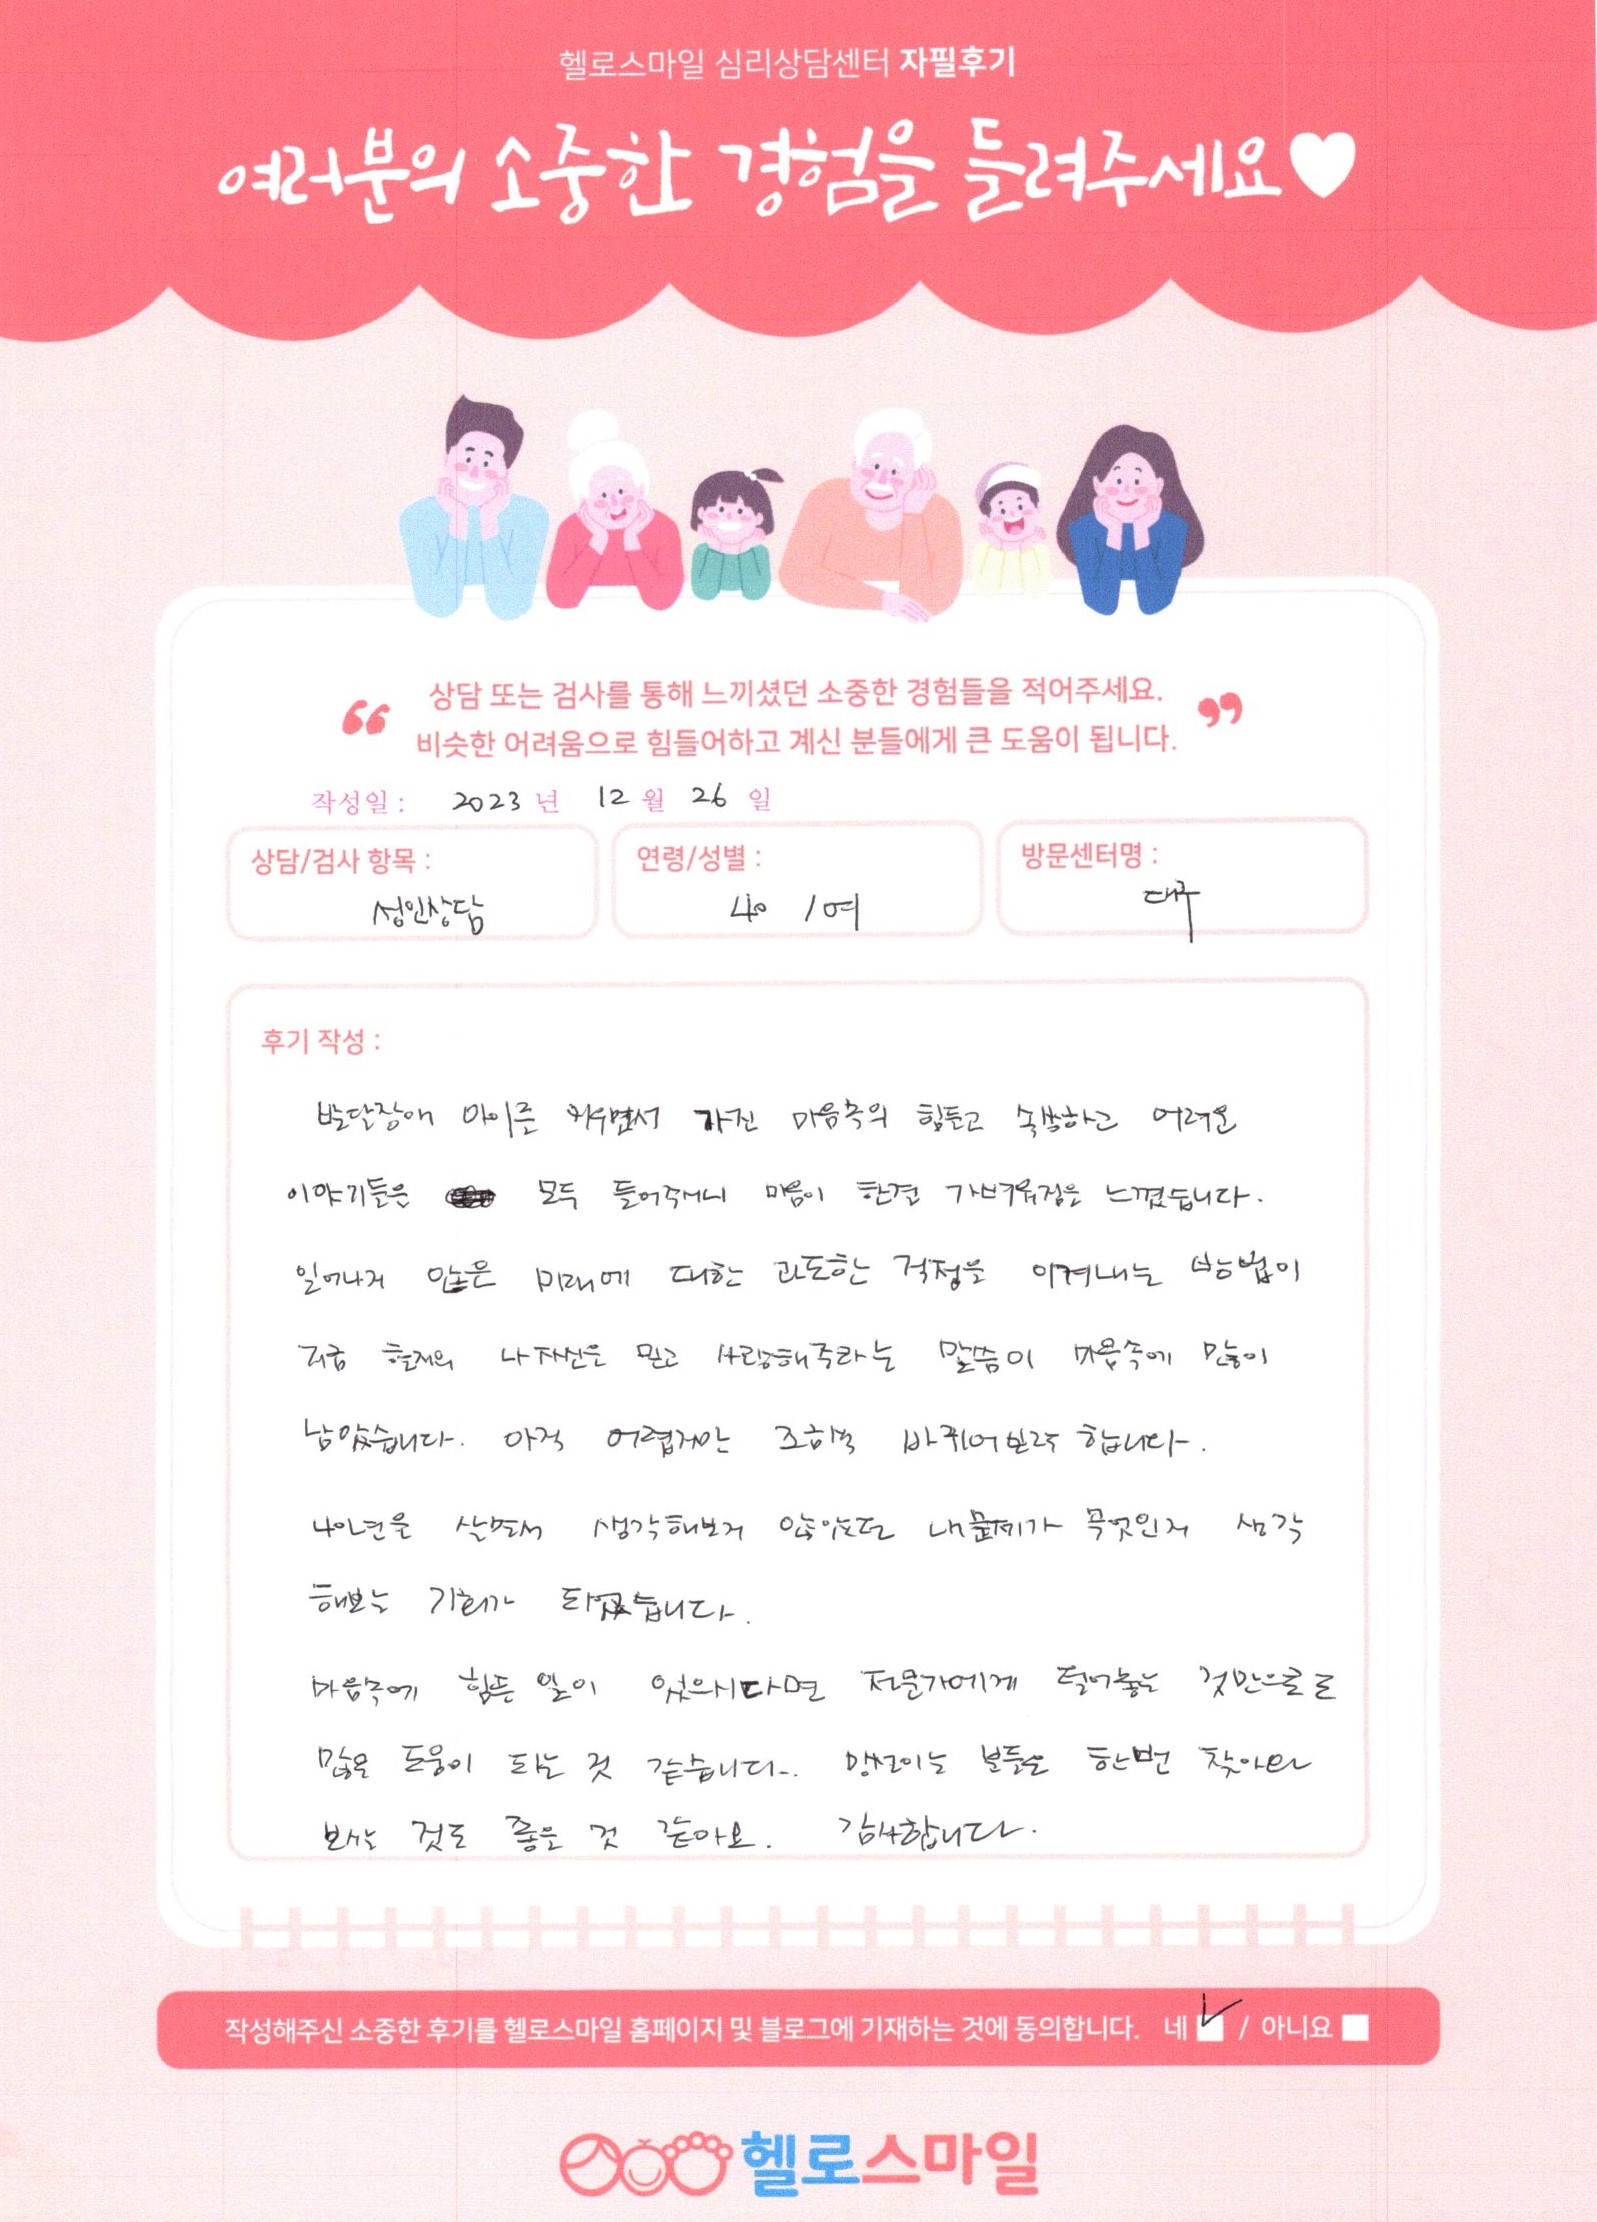 헬로스마일 심리상담센터 자필후기
여러분의 소중한 경험을 들려주세요
상담 또는 검사를 통해 느끼셨던 소중한 경험들을 적어주세요.
비슷한 어려움으로 힘들어하고 계신 분들에게 큰 도움이 됩니다.
작성일 : 2023 년 12 월 26 일
상담/검사 항목 : 연령/성별 : 방문센터명 :
성인상담 40 / 여 대구
후기 작성 :
발달장애 아이를 키우면서 가진 마음속의 힘들고 속상하고 어려운
이야기들을 모두 들어주시니 마음이 한결 가벼워짐을 느꼈습니다.
일어나지 않은 미래에 대한 과도한 걱정을 이겨내는 방법이
지금 현재의 나 자신을 믿고 사랑해주라는 말씀이 마음속에 많이
남았습니다. 아직 어렵지만 조금씩 바뀌어보려 합니다.
40년을 살면서 생각해보지 않았던 내 문제가 무엇인지 생각
해보는 기회가 되었습니다.
마음속에 힘든 일이 있으시다면 전문가에게 털어놓는 것만으로도
많은 도움이 되는 것 같습니다. 망설이는 분들은 한번 찾아와
보시는 것도 좋은 것 같아요. 감사합니다.
작성해주신 소중한 후기를 헬로스마일 홈페이지 및 블로그에 기재하는 것에 동의합니다. 네 / 아니요
헬로스마일